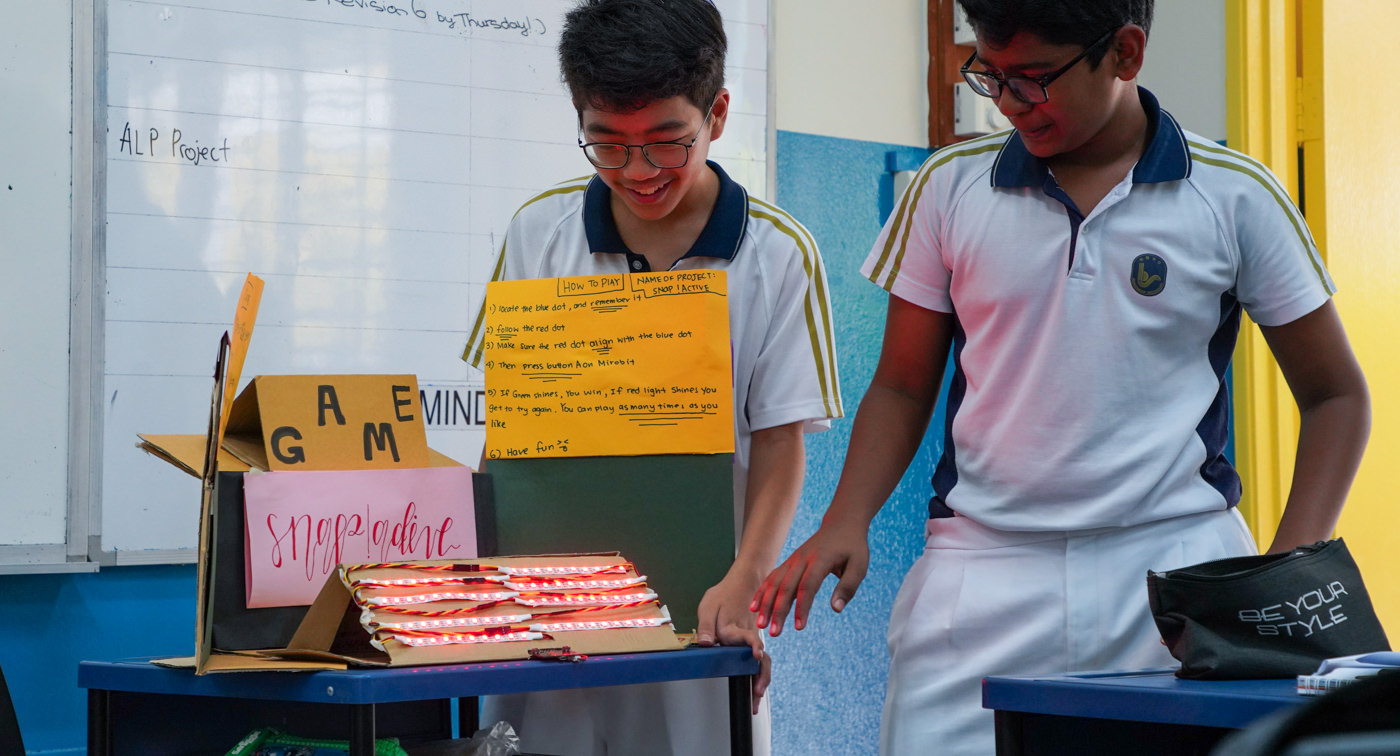 Revision 6 by Thursday!)
ALP Project
GAME
MIND
snap!active
HOW TO PLAY
NAME OF PROJECT:
SNAP!ACTIVE
1) locate the blue dot, and remember it
2) follow the red dot
3) Make sure the red dot align with the blue dot
4) Then press button A on Mirobit
5) If Green shines, You win, If red light shines you
get to try again. You can play as many times as you
like
6) Have fun
BE YOUR
STYLE